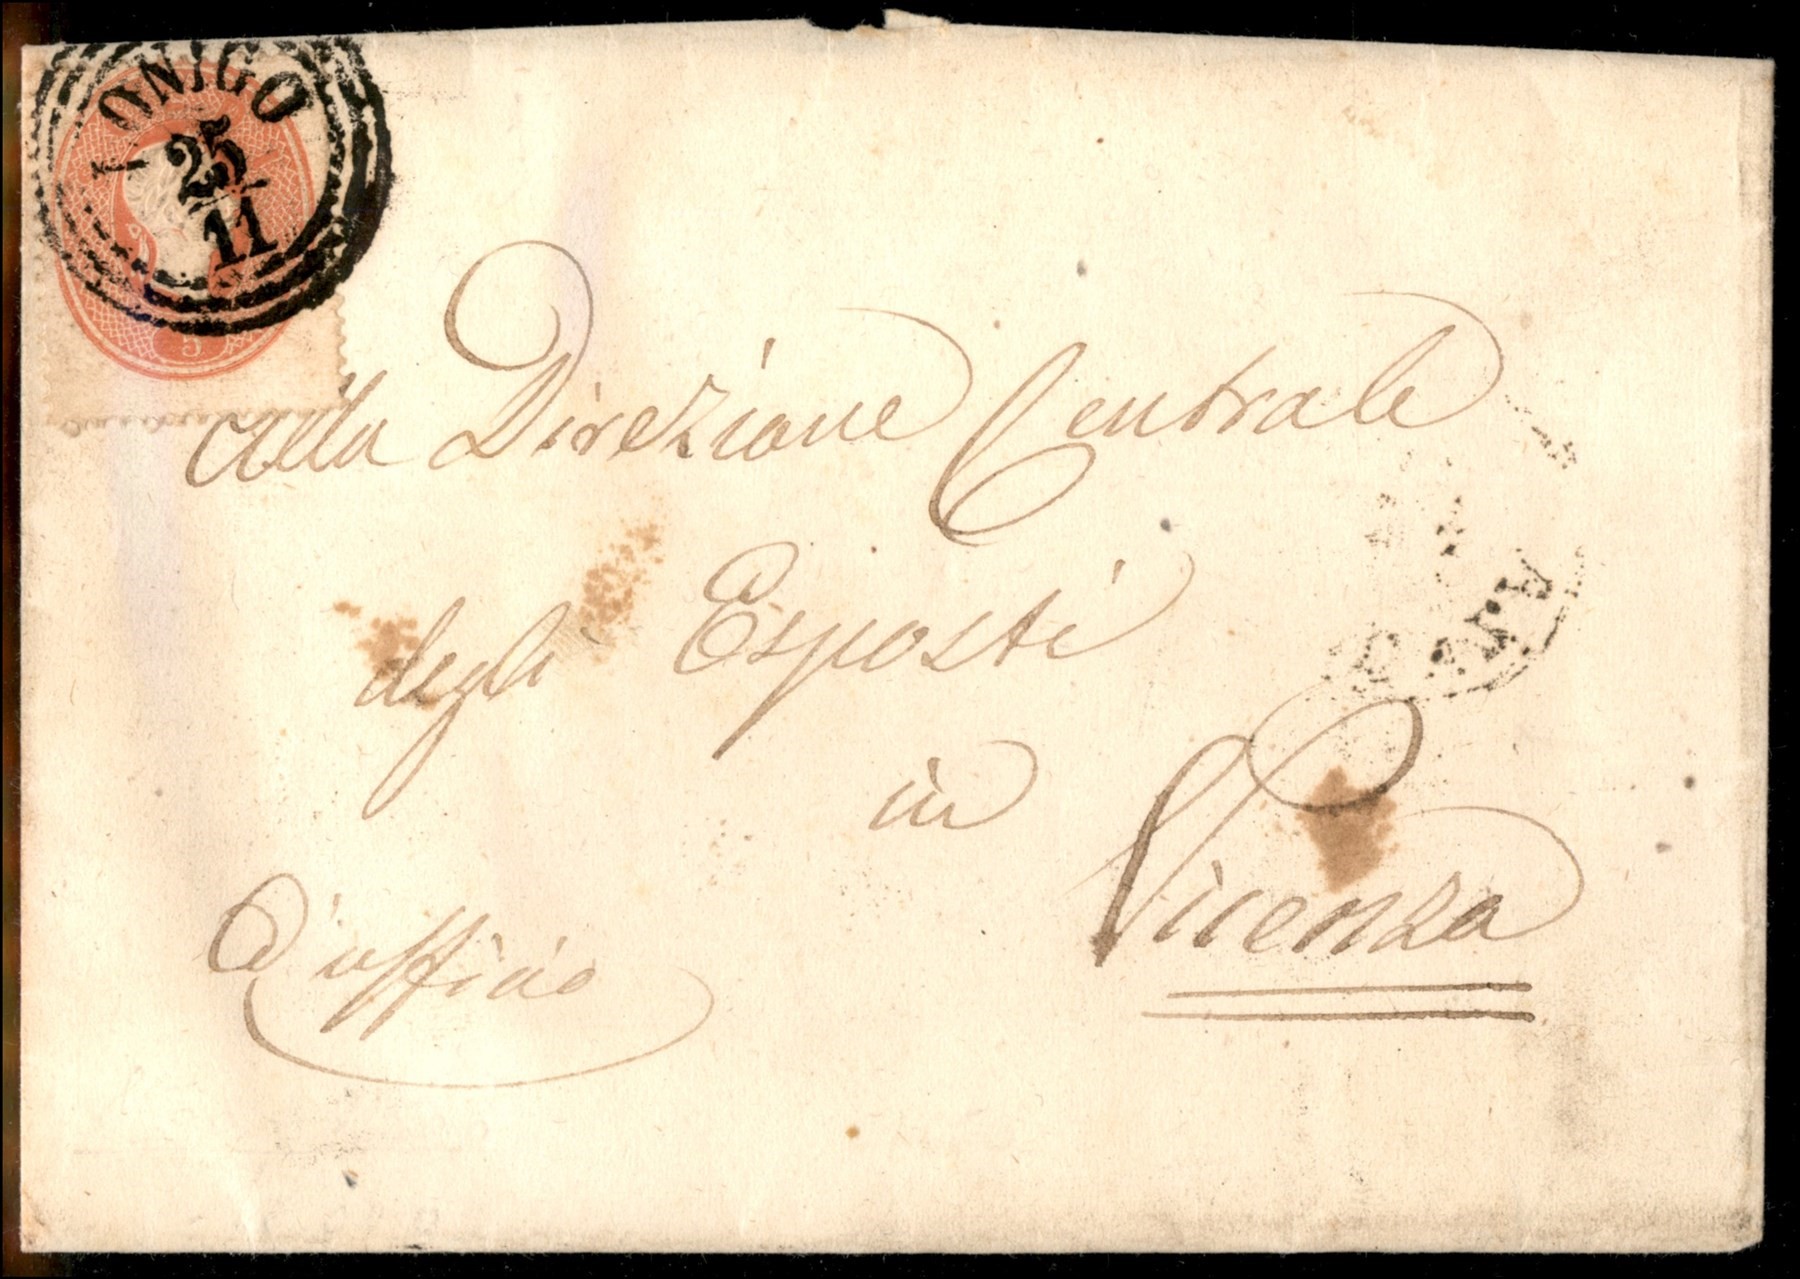 LONIGO
25
11
5
Alla Direzione Centrale
degli Esposti
in
Vicenza
d'uffizio